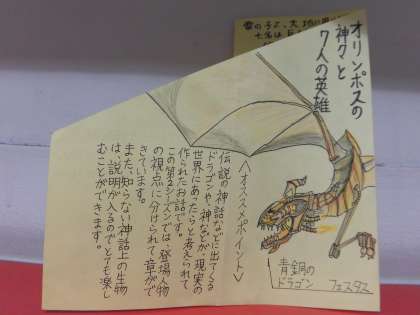 オリンポスの
神々と
7人の英雄
<オススメポイント>
伝説の神話などに出てくる
ドラゴンや、神などが、現実の
世界にあったらと考えられて
作られたお話です。
この第2シーズンでは、登場人物
の視点に分けられて章がで
きています。
また、知らない神話上の生物
は、説明が入るのでとても楽し
むことができます。
青銅の
ドラゴン
フェスタス